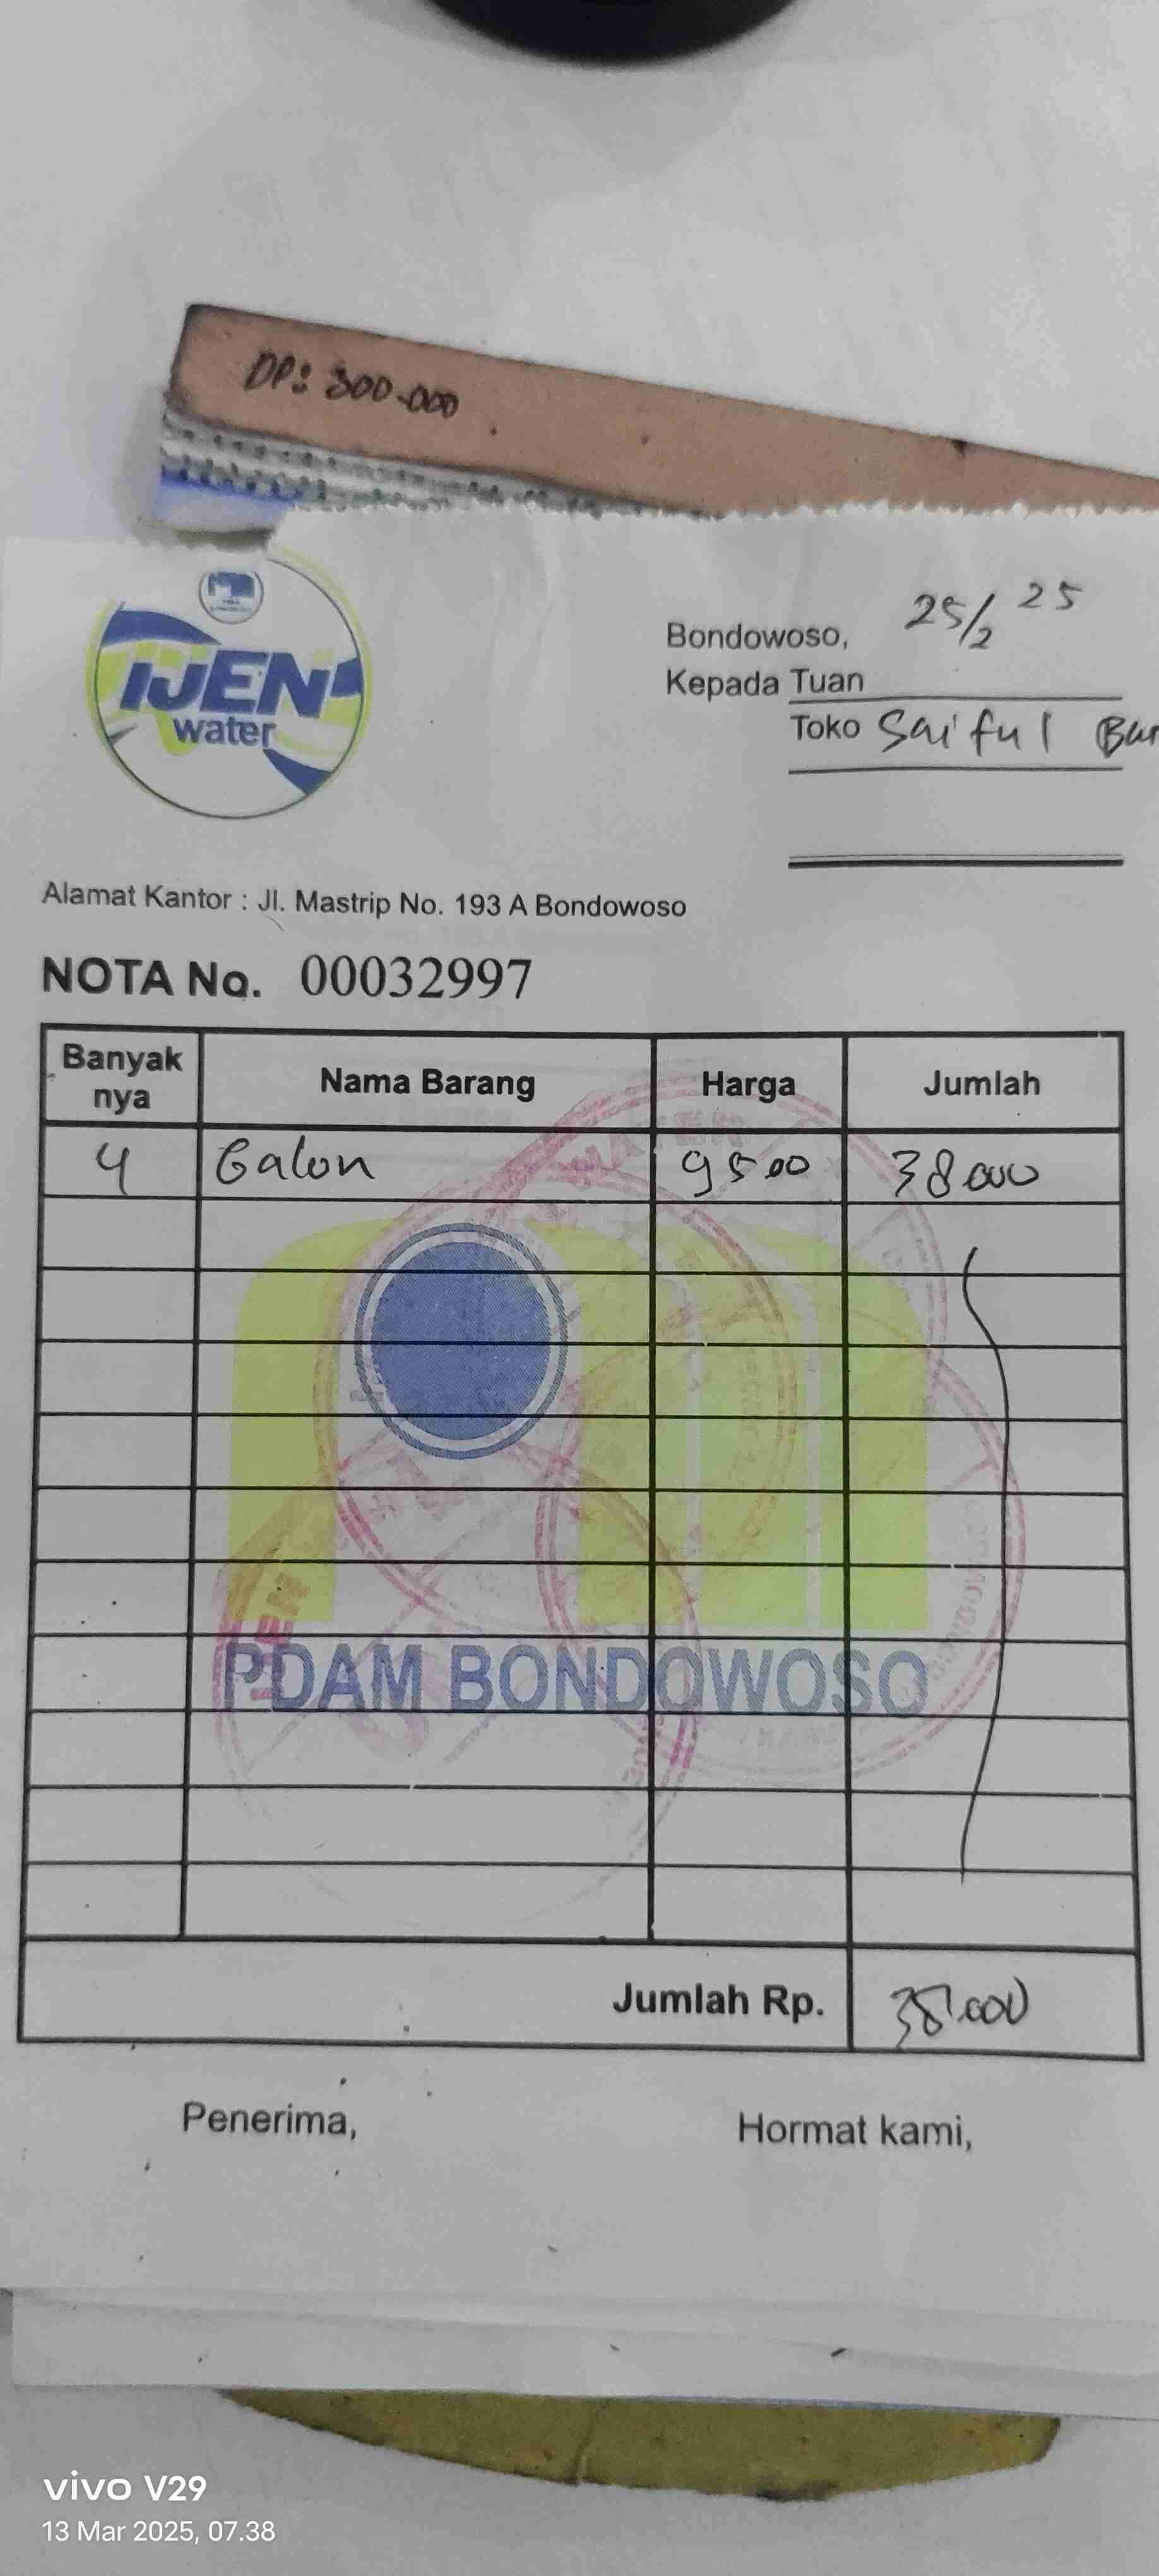 DP: 300.000
IJEN
water
Bondowoso, 25/2 25
Kepada Tuan
Toko Saiful Bar
Alamat Kantor : Jl. Mastrip No. 193 A Bondowoso
NOTA No. 00032997
Banyak nya Nama Barang Harga Jumlah
4 Galon 9500 38000
PDAM BONDOWOSO
Jumlah Rp. 38.000
Penerima, Hormat kami,
vivo V29
13 Mar 2025, 07.38